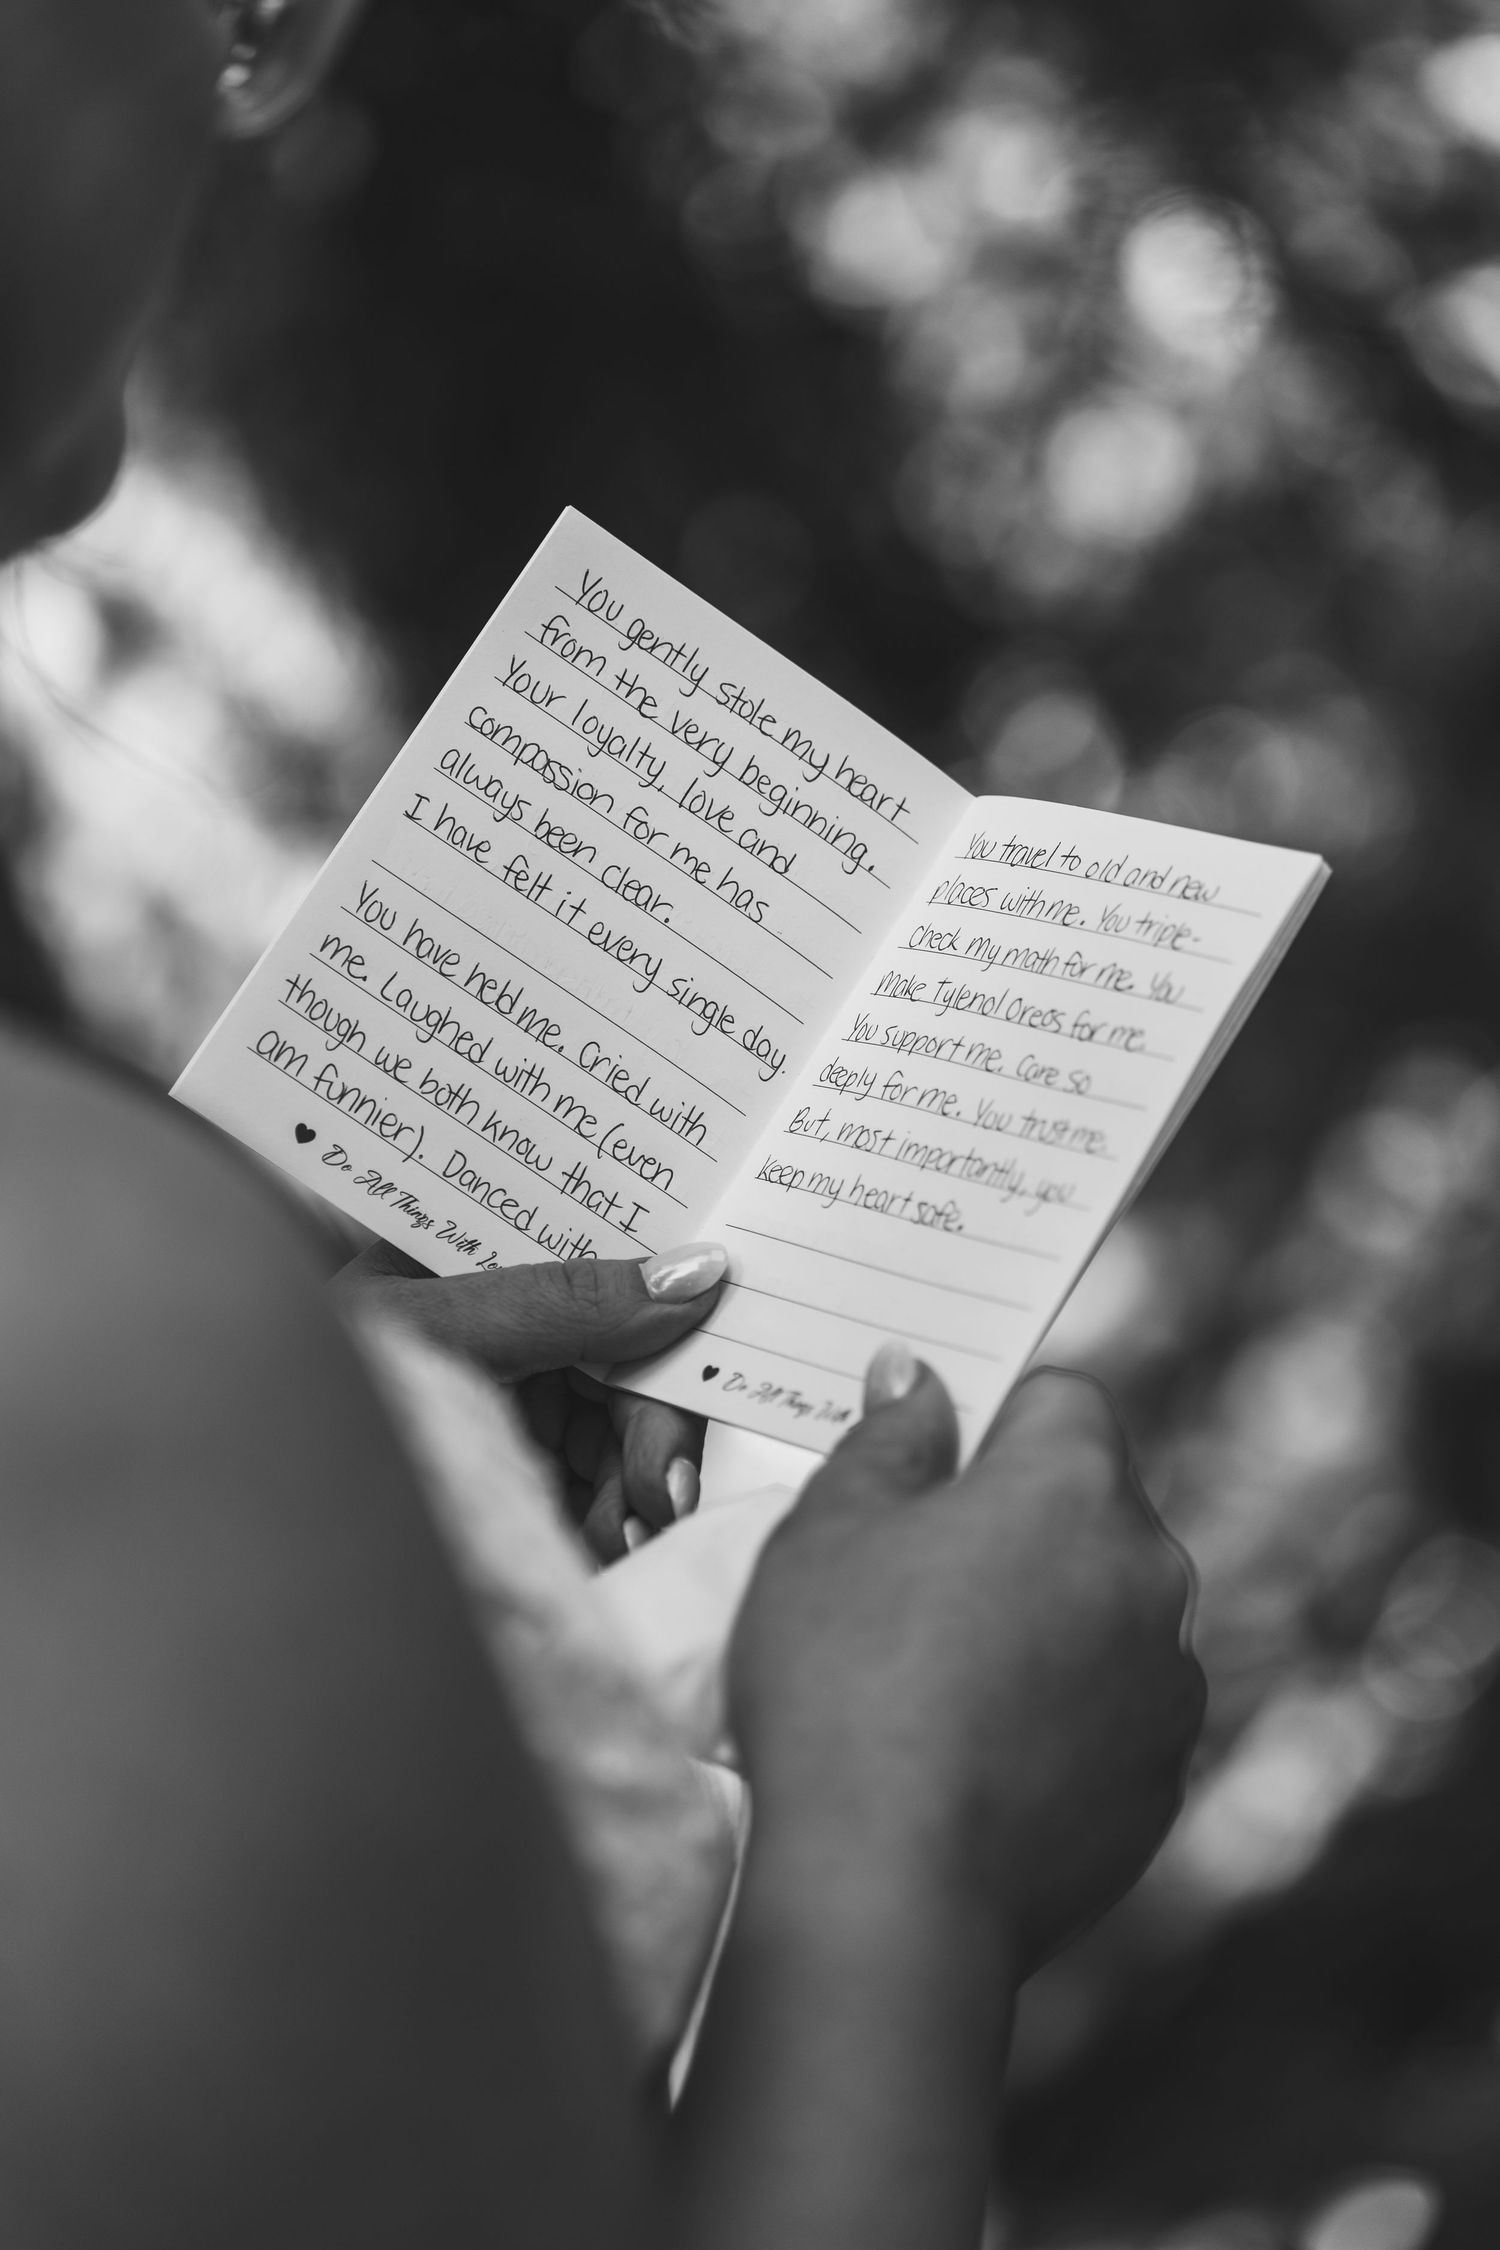 You gently stole my heart
from the very beginning.
Your loyalty, love and
compassion for me has
always been clear.
I have felt it every single day.
You have held me. Cried with
me. Laughed with me (even
though we both know that I
am funnier). Danced with
♥ Do All Things With Lo
You travel to old and new
places with me. You triple-
check my math for me. You
make Tylenol Oreos for me.
You support me. Care so
deeply for me. You trust me.
But, most importantly, you
keep my heart safe.
♥ Do All Things With